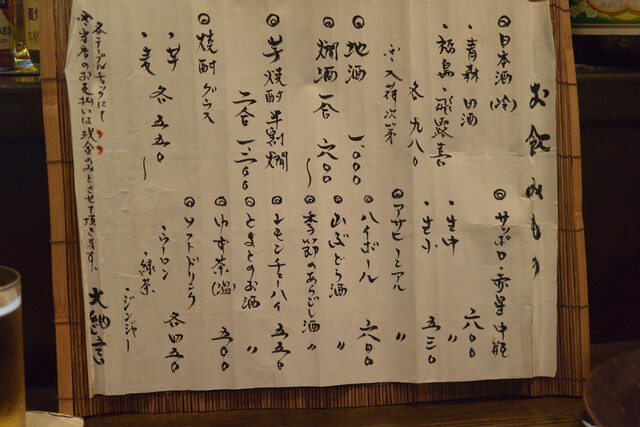 お飲みもの
◎日本酒(冷)
・青森 田酒
・福島・飛露喜
各 九八〇
※入荷次第
◎地酒 一、〇〇〇
◎燗酒 一合 六〇〇〜
二合 一、二〇〇
◎芋焼酎 半割燗
◎焼酎グラス
・芋
・麦 各 五五〇〜
◎サッポロ・赤星 中瓶
・生中 六〇〇
・生小 五三〇
◎アサヒ
◎ハイボール 六〇〇
◎山ぶどう酒 〃
◎季節のあらごし酒 〃
◎レモンチューハイ 五五〇
◎とまとのお酒 〃
◎ゆず茶(温) 五〇〇
◎ソフトドリンク 各四五〇
・ウーロン
・緑茶
・ジンジャー
各テーブルチェックにて
※当店のお支払いは現金のみとさせて頂きます。
大納言